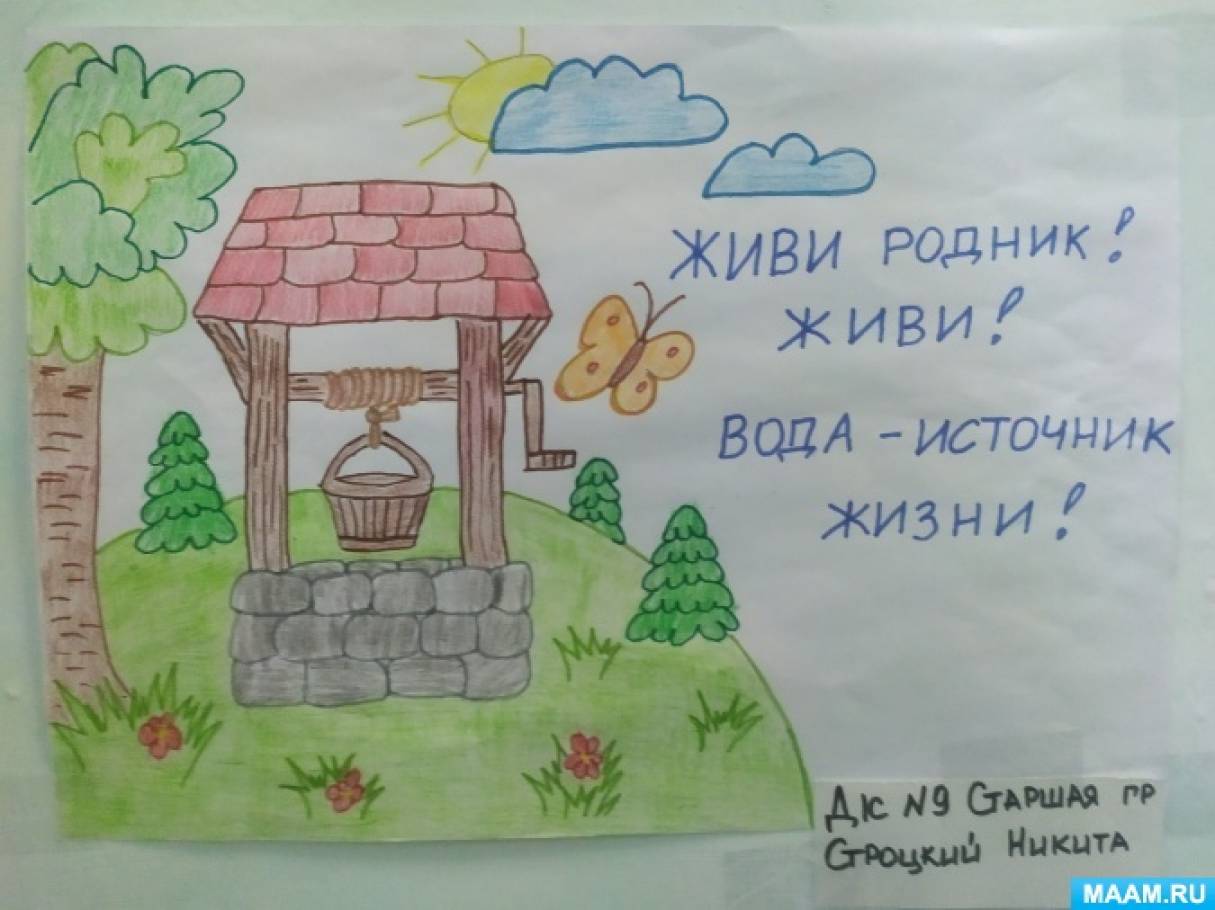 ЖИВИ РОДНИК!
ЖИВИ!
ВОДА - ИСТОЧНИК
ЖИЗНИ!
Д/С №9 СТАРШАЯ ГР
СТРОЦКИЙ НИКИТА
MAAM.RU